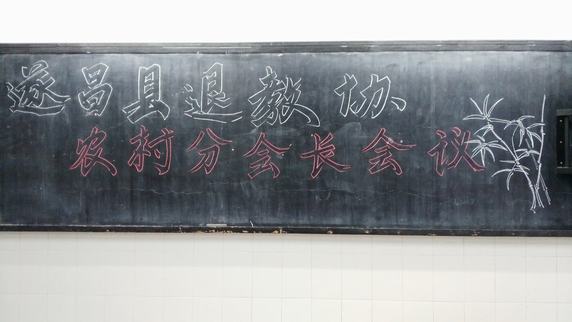 遂昌县退教协
农村分会长会议